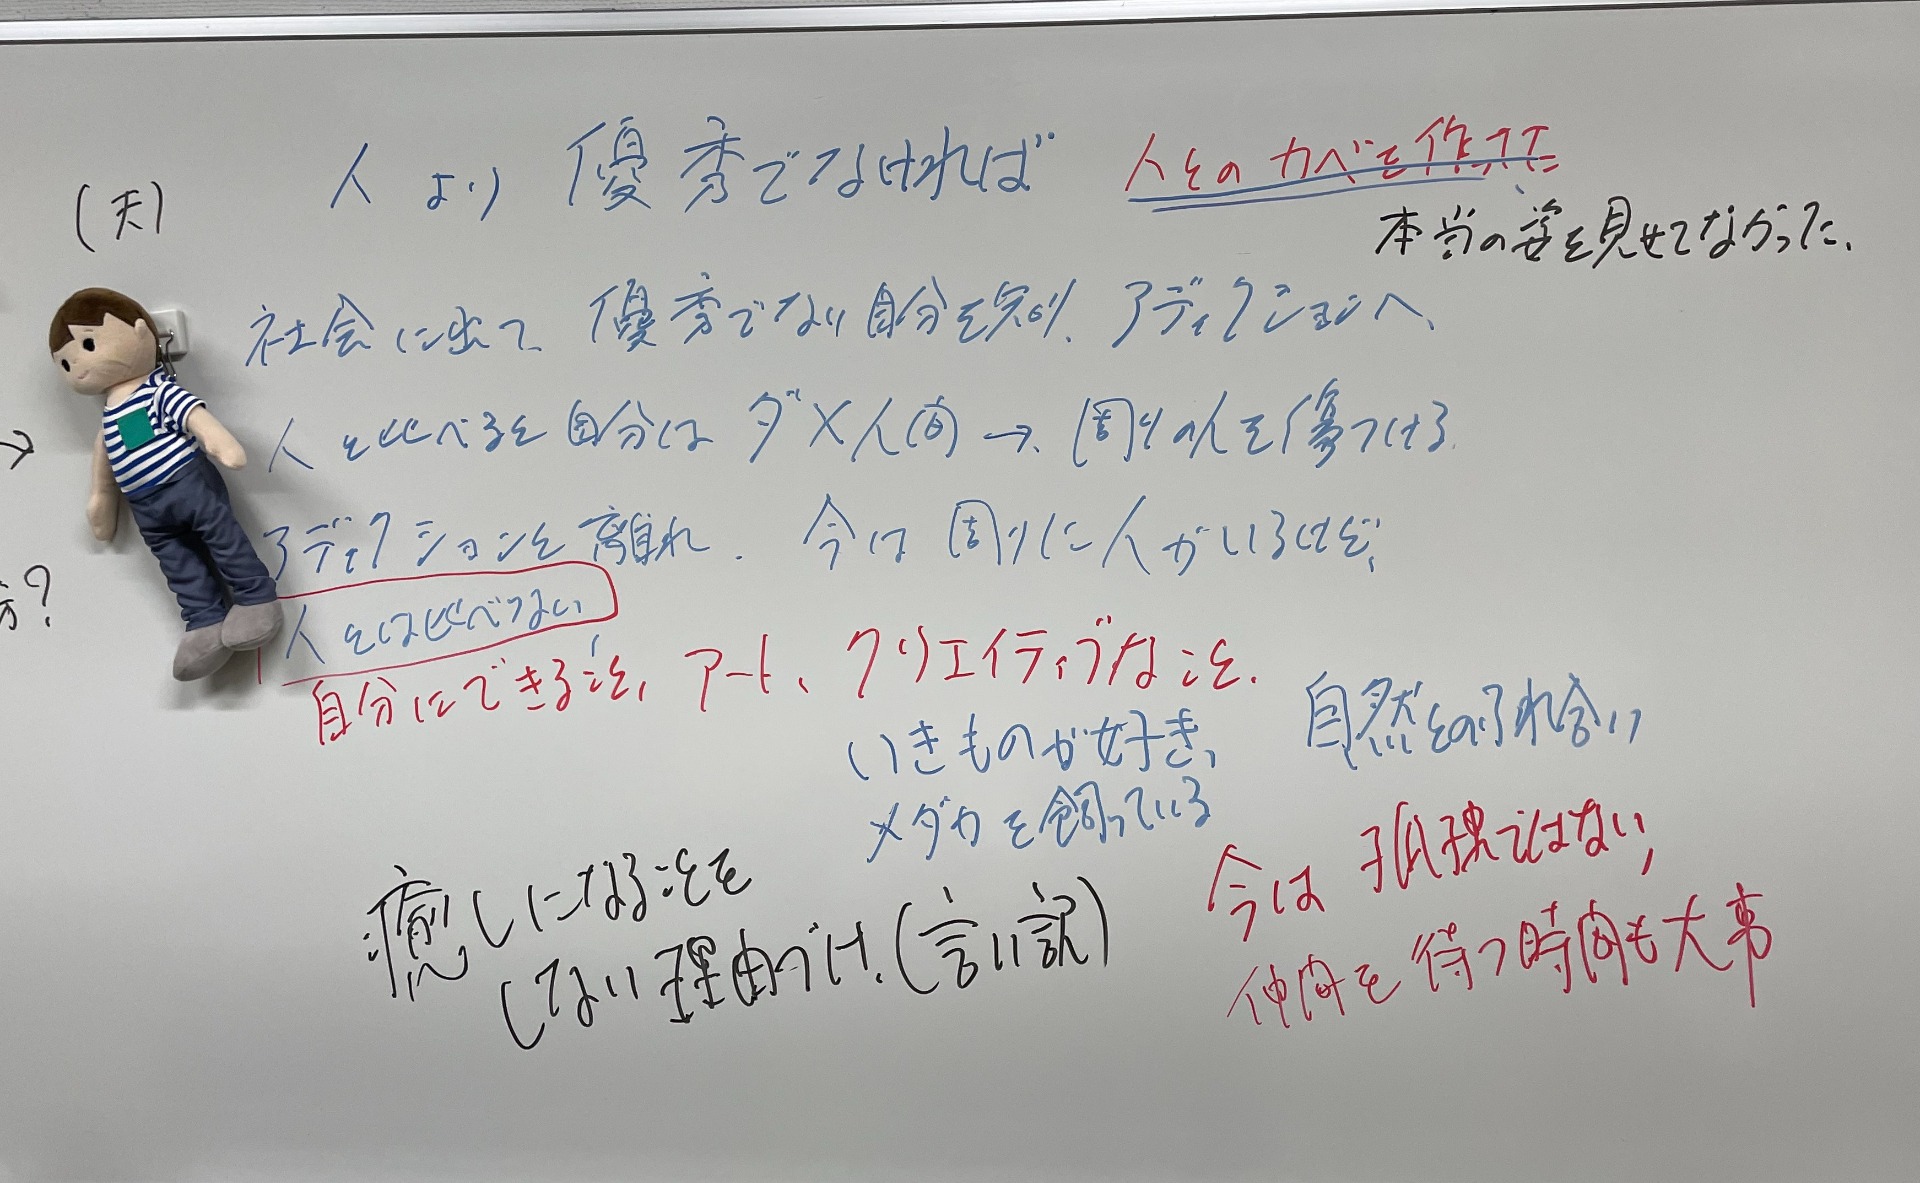 (天)
人より優秀でなければ
人とのカベを作ってた
本当の姿を見せてなかった、
社会に出て、優秀でない自分を知り、アディクションへ、
人と比べると自分はダメ人間→、周りの人を傷つける
→
アディクションを離れ、今は周りに人がいるけど、
方?
人とは比べない
自分にできること、アート、クリエイティブなこと、
いきものが好き、
自然とのふれ合い
メダカを飼っている
癒しになることを
しない理由づけ、(言い訳)
今は孤独ではない、
仲間を待つ時間も大事